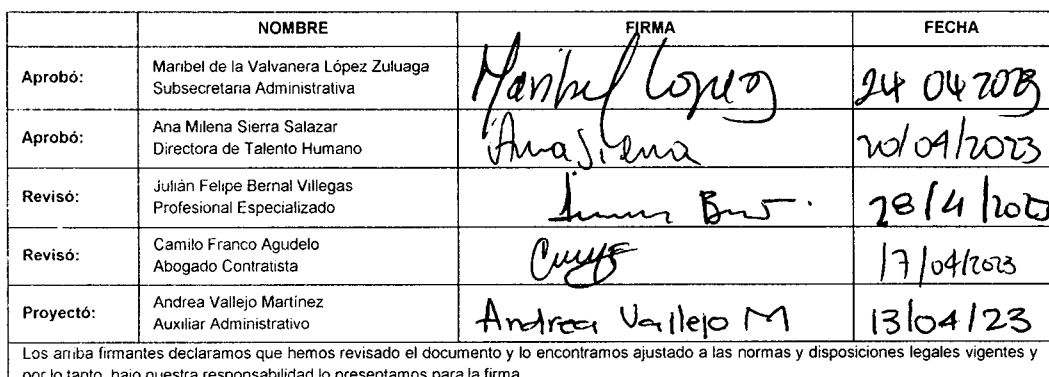 NOMBRE FIRMA FECHA
Aprobó: Maribel de la Valvanera López Zuluaga
Subsecretaria Administrativa
Maribel Lopez 24 04 2023
Aprobó: Ana Milena Sierra Salazar
Directora de Talento Humano
20/04/2023
Revisó: Julián Felipe Bernal Villegas
Profesional Especializado
Revisó: Camilo Franco Agudelo
Abogado Contratista
17/04/2023
Proyectó: Andrea Vallejo Martínez
Auxiliar Administrativo
Andrea Vallejo M 13/04/23
Los arriba firmantes declaramos que hemos revisado el documento y lo encontramos ajustado a las normas y disposiciones legales vigentes y
por lo tanto, bajo nuestra responsabilidad lo presentamos para la firma